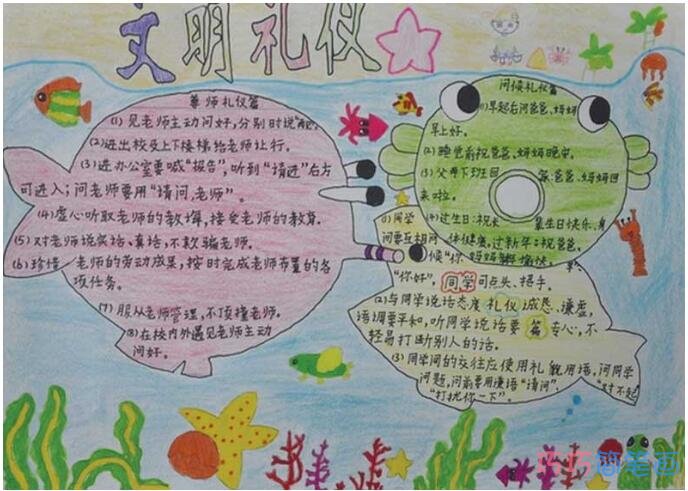 文明礼仪
尊师礼仪篇
(1) 见老师主动问好,分别时说“再见”。
(2)进出校及上下楼梯给老师让行。
(3)进办公室要喊“报告”,听到“请进”后方
可进入;问老师要用“请问,老师”。
(4)虚心听取老师的教诲,接受老师的教育。
(5)对老师说实话、真话,不欺骗老师。
(6)珍惜老师的劳动成果,按时完成老师布置的各
项任务。
(7)服从老师管理,不顶撞老师。
(8)在校内外遇见老师主动
问好。
问候礼仪篇
(1)早起后问爸爸、妈妈
早上好。
(2)睡觉前祝爸爸、妈妈晚安。
(3)父母下班回 爸爸、妈妈回
来啦。
(4)过生日:祝长 生日快乐、身
体健康,过新年:祝爸爸、
妈妈 愉快
(1)同学
间要互相问
候“你
“你好”, 同学可点头、招手。
(2)与同学说话态度 诚恳、谦虚,
语调要平和,听同学说话要 专心,不
轻易打断别人的话。
礼仪
篇
(3)同学间的交往应使用礼貌用语,问同学
问题,问前要用谦语“请问”、“对不起
“打扰你一下”。
简笔画